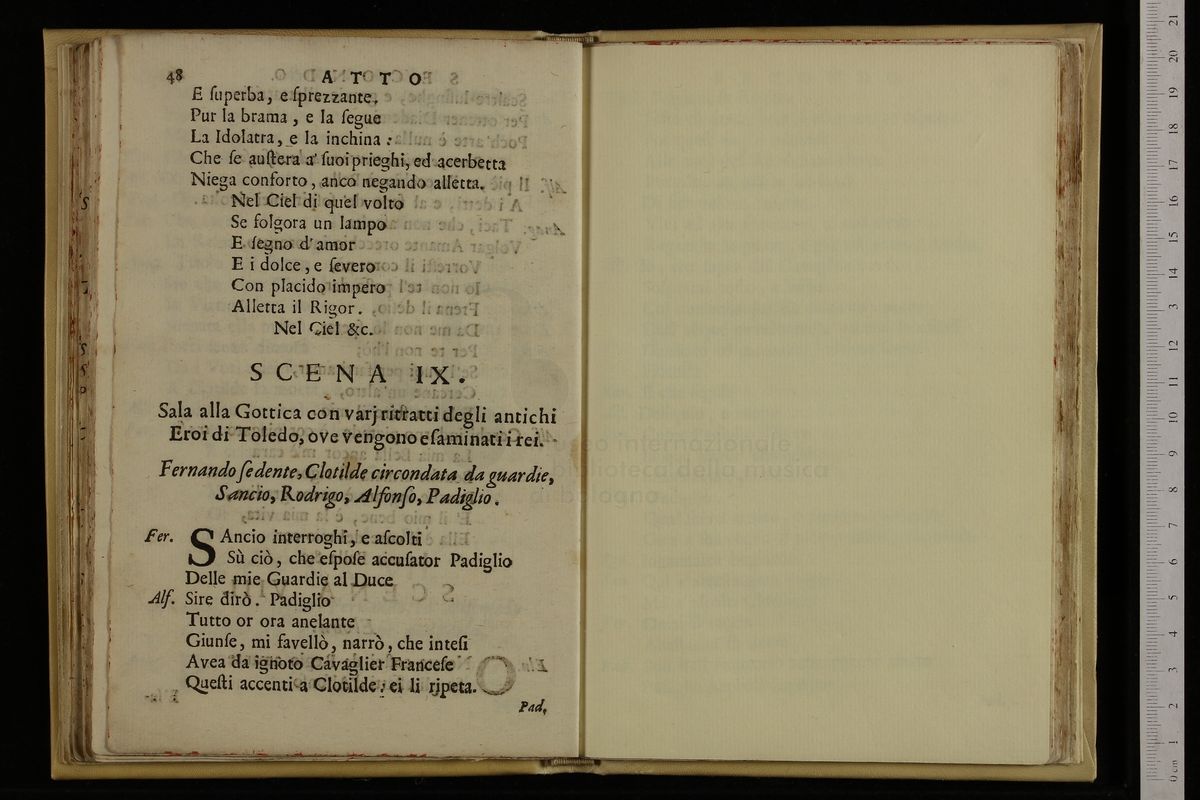 48 ATTO
E ſuperba, e ſprezzante,
Pur la brama, e la ſegue
La Idolatra, e la inchina:
Che ſe auſtera a' ſuoi prieghi, ed acerbetta
Niega conforto, anco negando alletta.
Nel Ciel di quel volto
Se folgora un lampo
E ſegno d'amor
E i dolce, e ſevero
Con placido impero
Alletta il Rigor.
Nel Ciel &c.
SCENA IX.
Sala alla Gottica con varj ritratti degli antichi
Eroi di Toledo, ove vengono eſaminati i rei.
Fernando ſedente, Clotilde circondata da guardie,
Sancio, Rodrigo, Alfonſo, Padiglio.
Fer. SAncio interroghi, e aſcolti
Sù ciò, che eſpoſe accuſator Padiglio
Delle mie Guardie al Duce
Alf. Sire dirò. Padiglio
Tutto or ora anelante
Giunſe, mi favellò, narrò, che inteſi
Avea da ignoto Cavaglier Franceſe
Queſti accenti a Clotilde: ei li ripeta.
Pad.
museo internazionale
e biblioteca della musica
di bologna